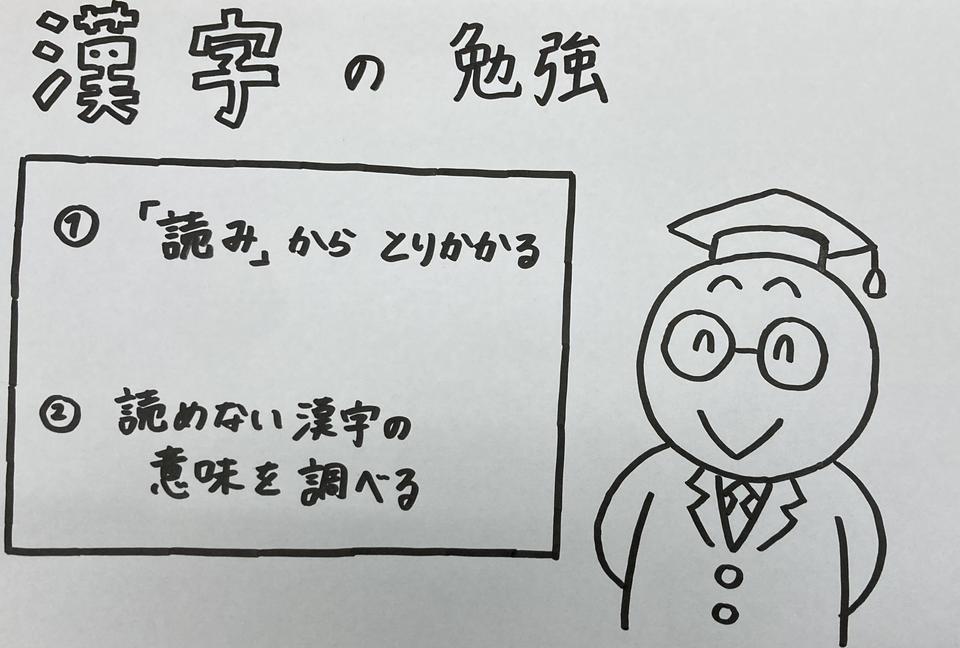 漢字の勉強
① 「読み」から とりかかる
② 読めない漢字の
意味を調べる